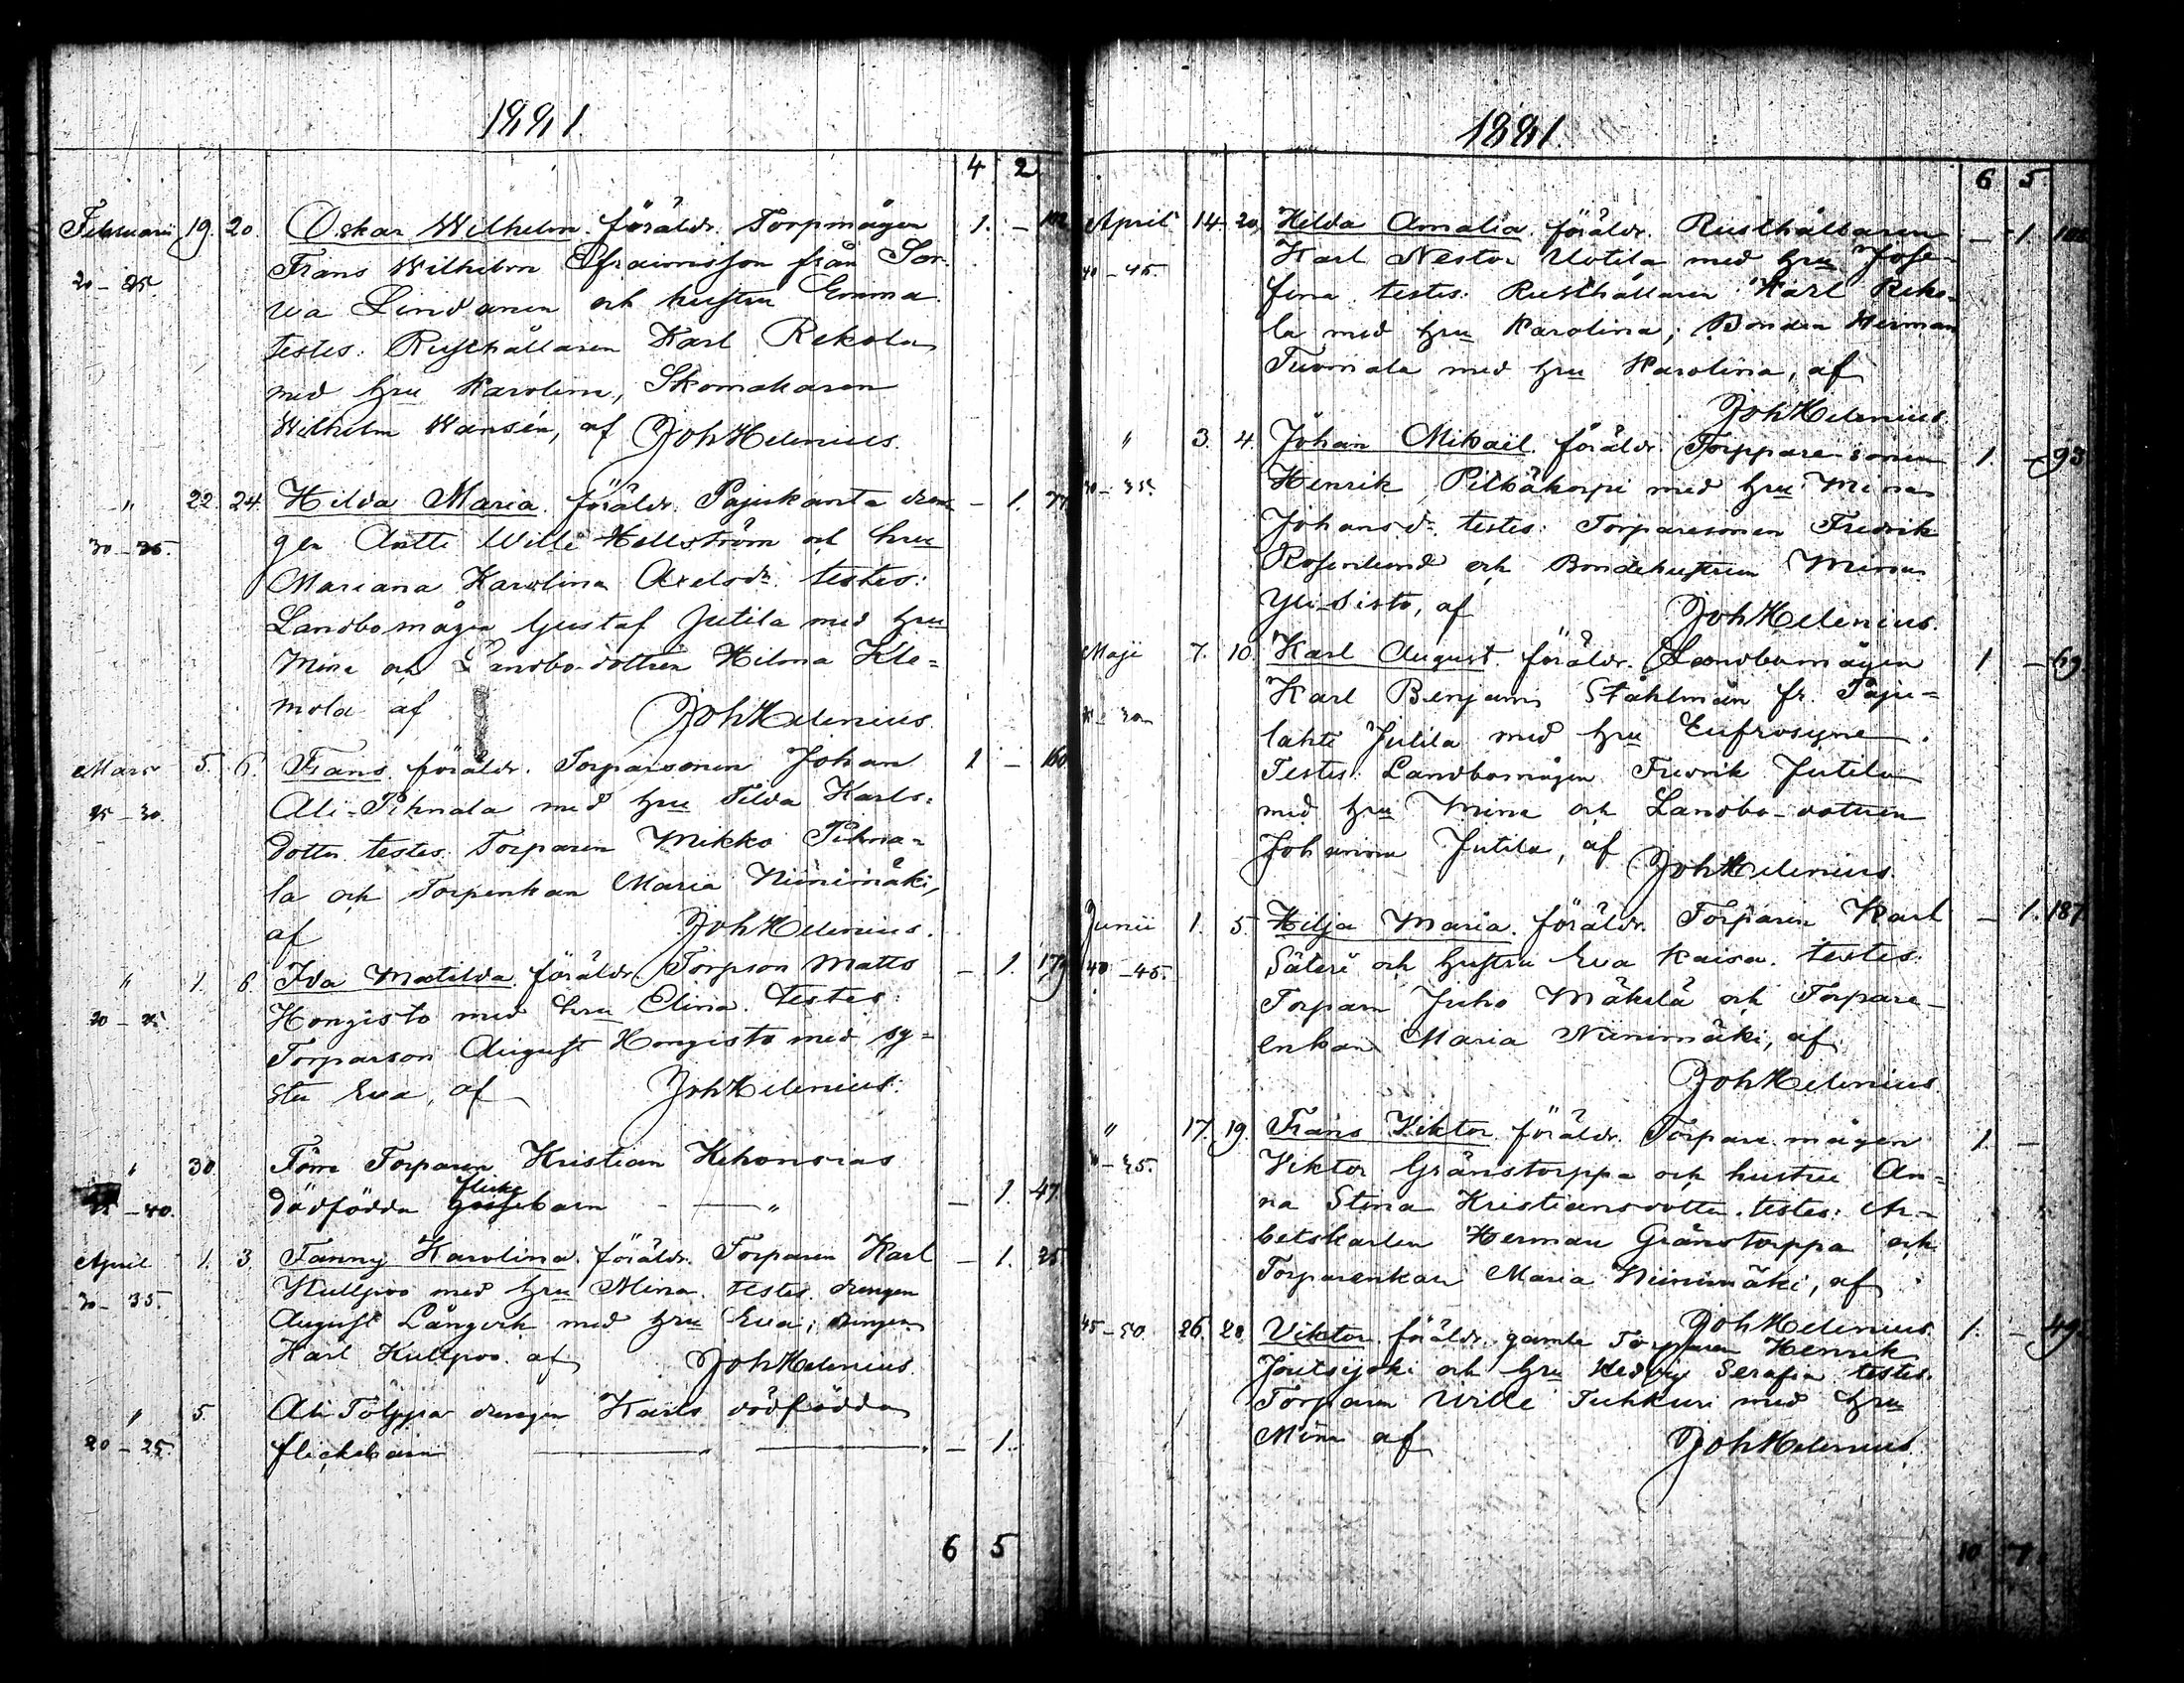 1881.
4 2
Februarii 19. 20. Oskar Wilhelm. föräldr. Torpmågen 1. – 102
20–25. Frans Wilhelm Efraimsson från Sor-
va Lindanen och hustru Emma.
testes: Rusthållaren Karl Rekola
med hru Karolina, Skomakaren
Wilhelm Wansén, af JohHelenius.
" 22. 24. Hilda Maria. föräldr. Pajukanta dren- – 1. 77
30–35. gen Antti Wille Hellström och hru
Mariana Karolina Axelsdr. testes:
Landbomågen Gustaf Jutila med hru
Mina och Landbo-dottren Hilma Kle-
mola af JohHelenius.
Mars 5. 6. Frans. föräldr. Torparsonen Johan 1 – 160
25–30. Ali-Pihnala med hru Tilda Karls-
dotter. testes. Torparen Mikko Pihna-
la och Torpenkan Maria Niinimäki,
af JohHelenius.
" 1. 6. Ida Matilda. föräldr. Torpson Matts – 1. 179
20–25. Hongisto med hru Elina. testes:
Torparson August Hongisto med sy-
ster Eva, af JohHelenius.
" 30 Förre Torparen Kristian Kehonojas
–40. dödfödda flicke gossebarn – " – 1. 47.
April 1. 3. Fanny Karolina. föräldr. Torparen Karl – 1. 25
30–35. Kullpoo med hru Mina. testes. drengen
August Långvik med hru Eva; drengen
Karl Kullpoo. af JohHelenius.
" 5. Ali Tölppä drengen Karls dödfödda
20–25. flickebarn " – 1.
6 5
1881.
6 5.
April 14. 20. Hilda Amalia. föräldr. Rusthållaren – 1. 100
40–45. Karl Nestor Uotila med hru Jose-
fina. testes: Rusthållaren Karl Reko-
la med hru Karolina; Bonden Herman
Tuomala med hru Karolina, af
JohHelenius.
" 3. 4. Johan Mikael. föräldr. Torpparesonen 1. – 93
30–35. Henrik Pitkäkorpi med hru Mina
Johansdr. testes: Torparesonen Fredrik
Rosenlund och Bondehustrun Mina
Yli-Sisto, af JohHelenius.
Maji 7. 10. Karl August. föräldr. Landbomågen 1 – 69.
25–30 Karl Benjam. Ståhlman fr. Paju-
lahti Jutila med hru Eufrosyne.
Testes: Landbomågen Fredrik Jutila
med hru Mina och Landbo-dottren
Johanna Jutila, af JohHelenius.
Junii 1. 5. Hilja Maria. föräldr. Torparen Karl – 1. 187
40–45. Säteri och hustru Eva Kaisa. testes:
Torparn Juho Mäkelä och Torpare-
enkan Maria Niinimäki, af
JohHelenius.
" 17. 19. Frans Viktor. föräldr. Torpare-mågen 1. –
–35. Viktor Gränstorppa och hustru An-
na Stina Kristiansdotter. testes: Ar-
betskarlen Herman Gränstorppa och
Torparenkan Maria Niinimäki, af
JohHelenius.
45–50. 26. 28. Viktor. föräldr. gamle Torparen Henrik 1. – 49.
Joutsijoki och hru Hedvig Serafia testes.
Torparen Wille Tuhkuri med hru
Mina af JohHelenius.
10 7